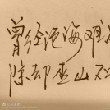 曾经沧海难
除却巫山不